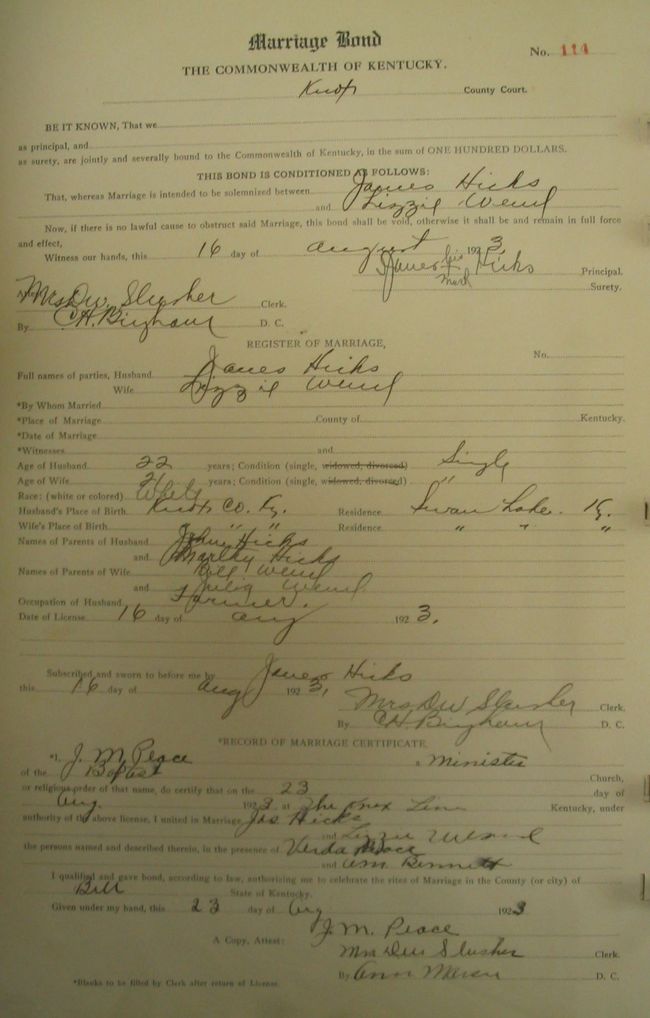 Marriage Bond
No. 114
THE COMMONWEALTH OF KENTUCKY.
Knox County Court.
BE IT KNOWN, That we
as principal, and
as surety, are jointly and severally bound to the Commonwealth of Kentucky, in the sum of ONE HUNDRED DOLLARS.
THIS BOND IS CONDITIONED AS FOLLOWS:
That, whereas Marriage is intended to be solemnized between James Hicks
and Lizzie
Now, if there is no lawful cause to obstruct said Marriage, this bond shall be void, otherwise it shall be and remain in full force
and effect,
Witness our hands, this 16 day of august 1923,
James his mark Hicks Principal.
Surety.
Attest: Mrs DW. Slusher Clerk.
By CH. Bingham D. C.
REGISTER OF MARRIAGE,
No.
Full names of parties, Husband James Hicks
Wife Lizzie
*By Whom Married
*Place of Marriage County of Kentucky.
*Date of Marriage
*Witnesses and
Age of Husband 22 years; Condition (single, widowed, divorced) Single
Age of Wife 21 years; Condition (single, widowed, divorced) "
Race: (white or colored) White
Husband's Place of Birth Knox Co. Ky. Residence Swan Lake. Ky.
Wife's Place of Birth " " Residence " " "
Names of Parents of Husband John Hicks
and Marthy Hicks
Names of Parents of Wife Bill
and
Occupation of Husband Farmer.
Date of License 16 day of aug 1923.
Subscribed and sworn to before me by James Hicks
this 16 day of aug 1923,
Mrs DW Slusher Clerk.
By CH. Bingham D. C.
*RECORD OF MARRIAGE CERTIFICATE.
*I, J. M. Peace a Minister
of the Baptist Church,
or religious order of that name, do certify that on the 23 day of
Aug. 1923 at The Knox Line Kentucky, under
authority of the above license, I united in Marriage Jas Hicks
and Lizzie
the persons named and described therein, in the presence of Verda Peace
and Bennett
I qualified and gave bond, according to law, authorizing me to celebrate the rites of Marriage in the County (or city) of
Bell State of Kentucky.
Given under my hand, this 23 day of Aug 1923
J. M. Peace
A Copy, Attest: Mrs DW Slusher Clerk.
By Ann D. C.
*Blanks to be filled by Clerk after return of License.